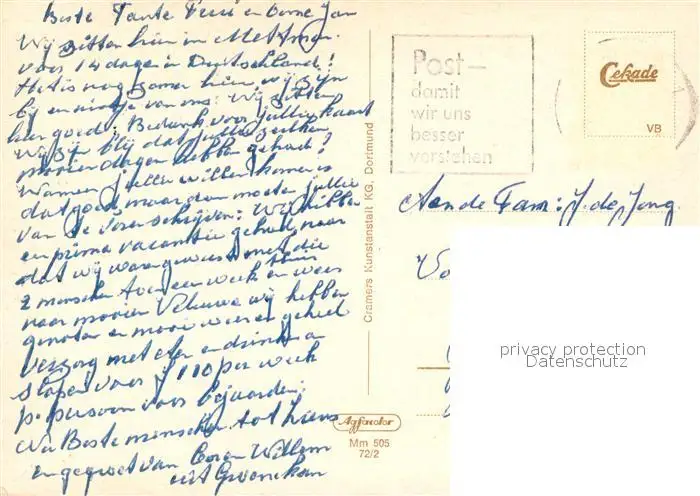 Beste Tante Fem en oome Jan
Wij zitten hier in Mettman.
voor 14 dage in Duitschland!
Het is nog zomer hier wij zijn
bij en nichtje van ons: Wij zitten
hier goed, Bedank voor jullie kaart
Wij zijn blij dat jullie zulke
mooier dagen hebben gehad?
Wannen jullie willen komen is
dat goed maar dan moeten jullie
van de voren schrijven: Wij hebben
en prima vacantie gehad naar
dat wij waren geweest met die
2 menschen twee en week en weer thuis
naar mooier Veluwe wij hebben
genoten en mooi weer en geheel
verzorg met eten en drinken
slapen voor f 110 per week
p. persoon voor bejaarden:
Nu Beste menschen tot ziens
en gegroet van Coren Willem
uit Groenekan
Post—
damit
wir uns
besser
verstehen
Cekade
VB
Cramers Kunstanstalt KG, Dortmund
Aan de Fam: J. de Jong
Agfacolor
Mm 505
72/2
privacy protection
Datenschutz